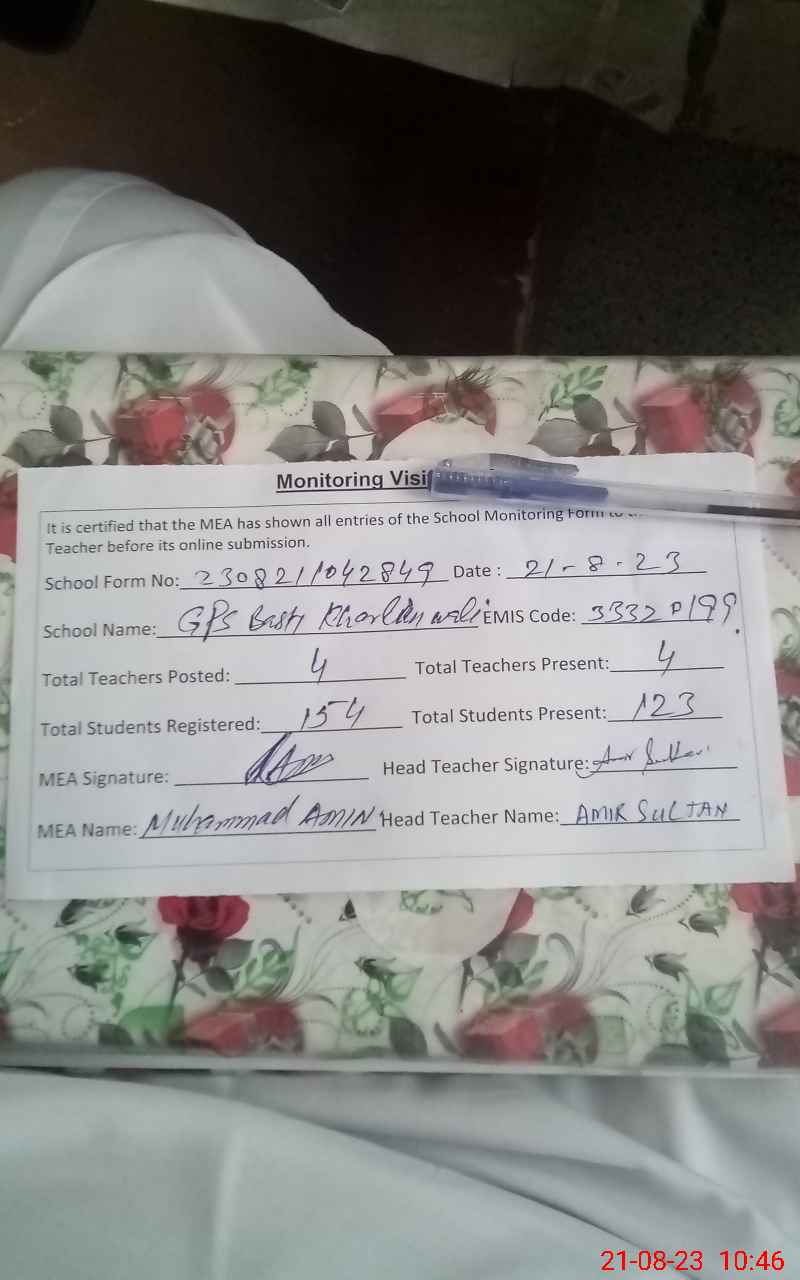 Monitoring Visi
It is certified that the MEA has shown all entries of the School Monitoring Form to
Teacher before its online submission.
School Form No: 2308211042849 Date : 21-8-23
School Name: GPS Basti Kharlan wali EMIS Code: 33320199
Total Teachers Posted: 4 Total Teachers Present: 4
Total Students Registered: 154 Total Students Present: 123
MEA Signature: Head Teacher Signature: Amir Sultan
MEA Name: Muhammad AMIN Head Teacher Name: AMIR SULTAN
21-08-23 10:46